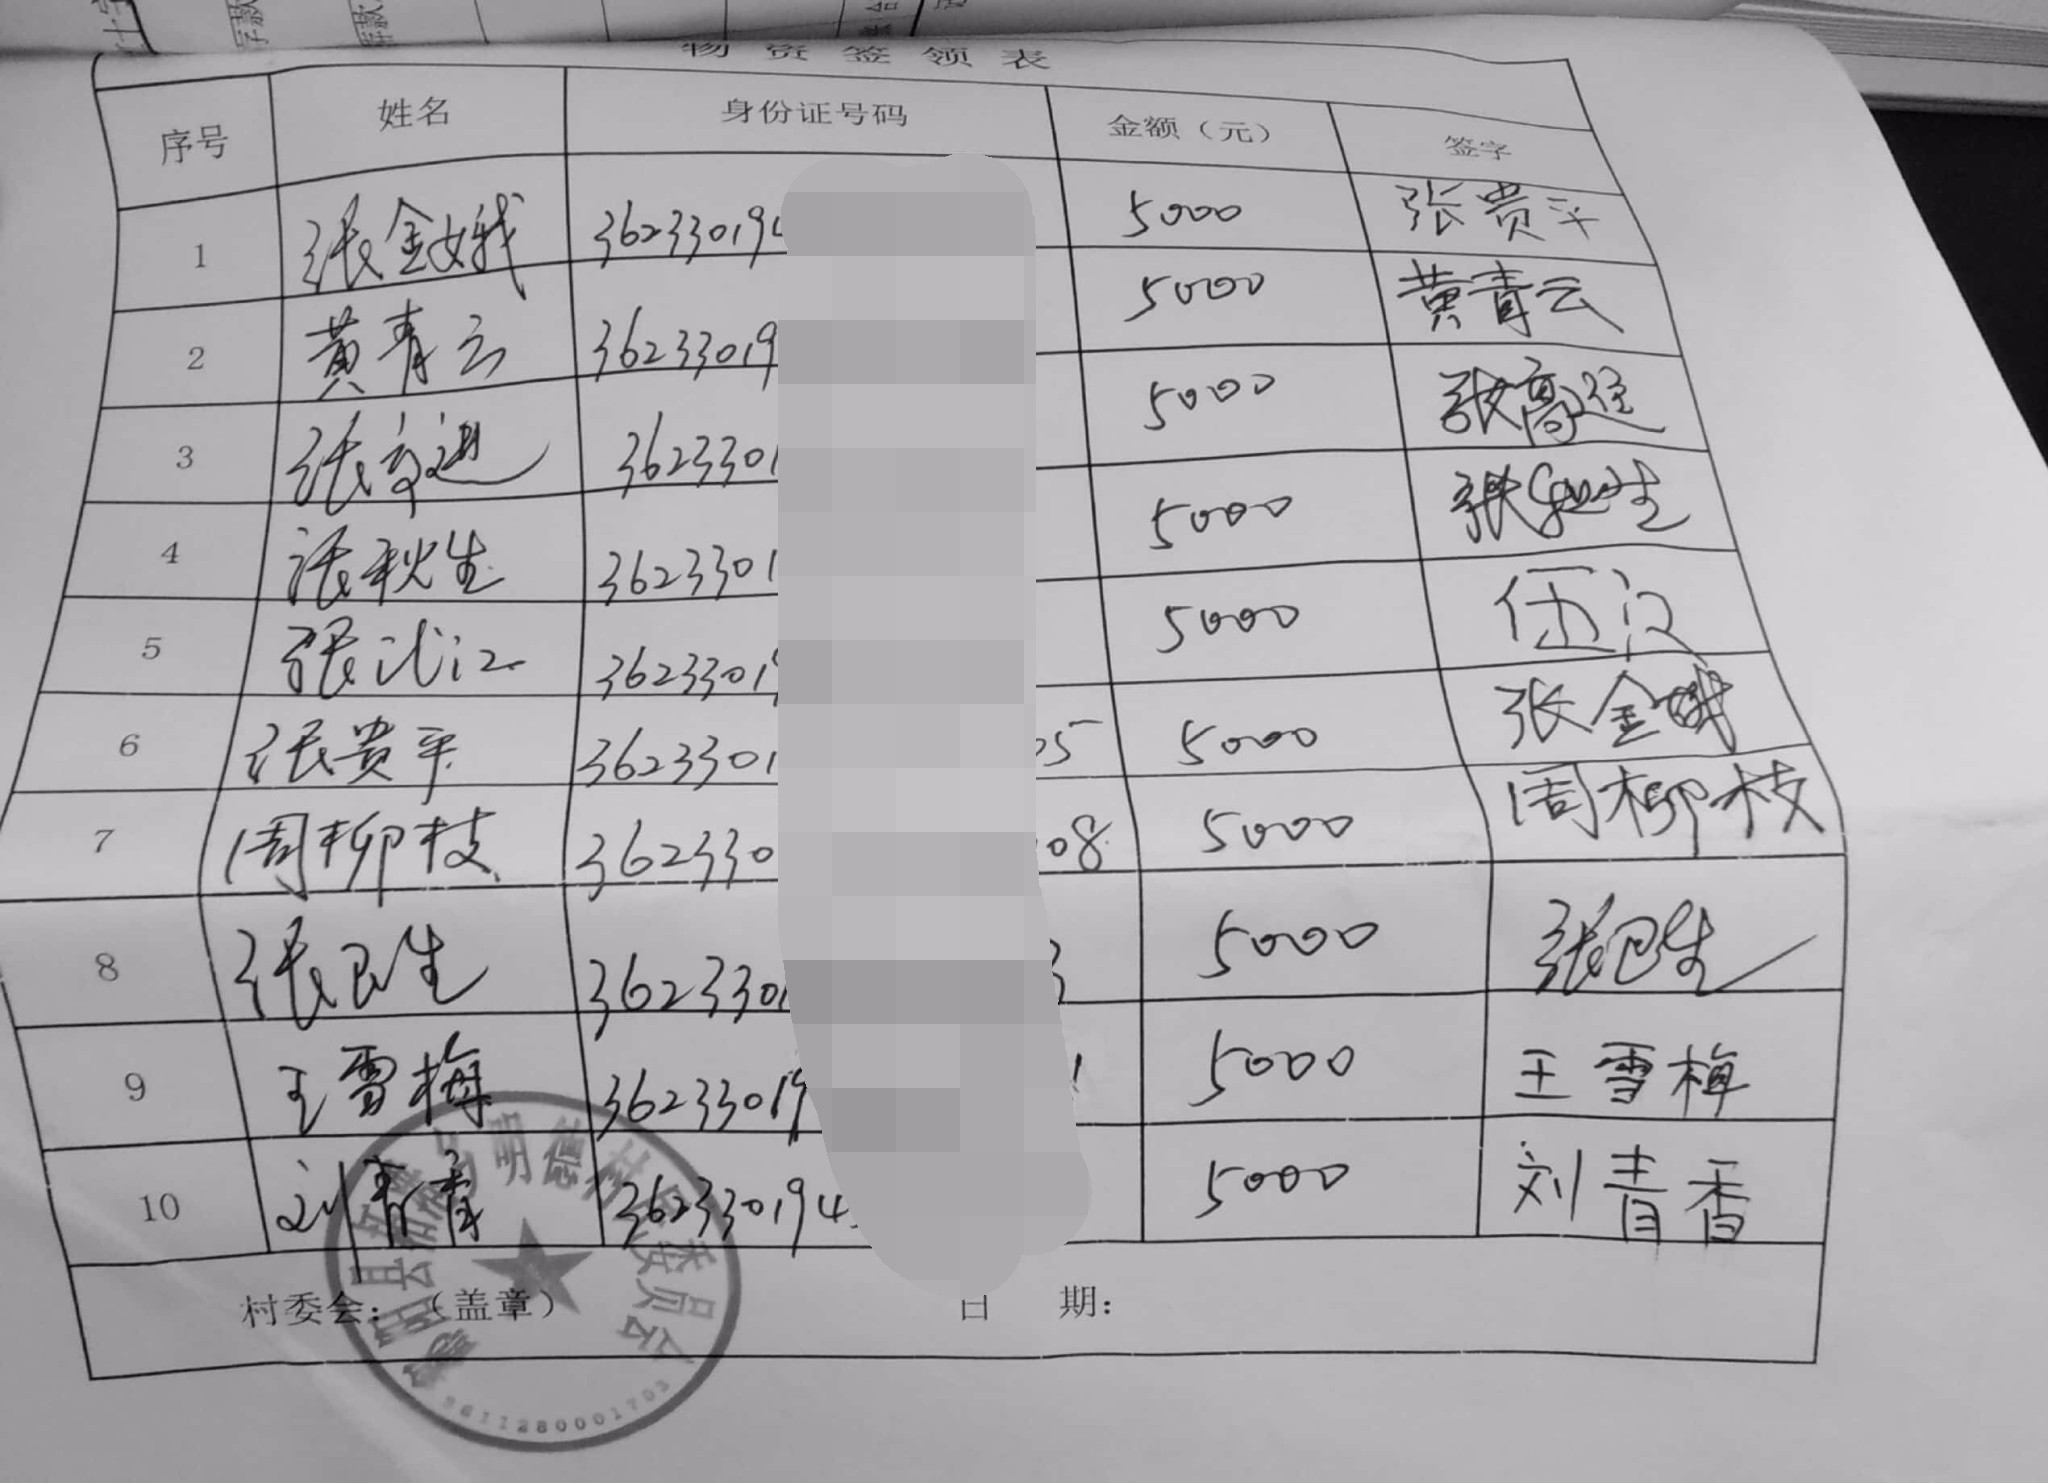 物资签领表
序号 姓名 身份证号码 金额（元） 签字
1 张金娥 36233019 5000 张贵平
2 黄青云 36233019 5000 黄青云
3 张高进 3623301 5000 张高进
4 张秋生 3623301 5000 张秋生
5 张 3623301 5000
6 张贵平 3623301 05 5000 张金娥
7 周柳枝 362330 08 5000 周柳枝
8 张卫生 3623301 3 5000 张卫生
9 王雪梅 36233019 1 5000 王雪梅
10 刘青香 362330194 5000 刘青香
村委会：（盖章） 日 期：
明德村民委员会
3611280001703